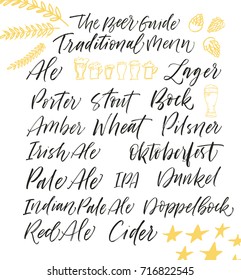 The Beer Guide
Traditional Menu
Ale Lager
Porter Stout Bock
Amber Wheat Pilsner
Irish Ale Oktoberfest
Pale Ale IPA Dunkel
Indian Pale Ale Doppelbock
Red Ale Cider
shutterstock.com · 716822545